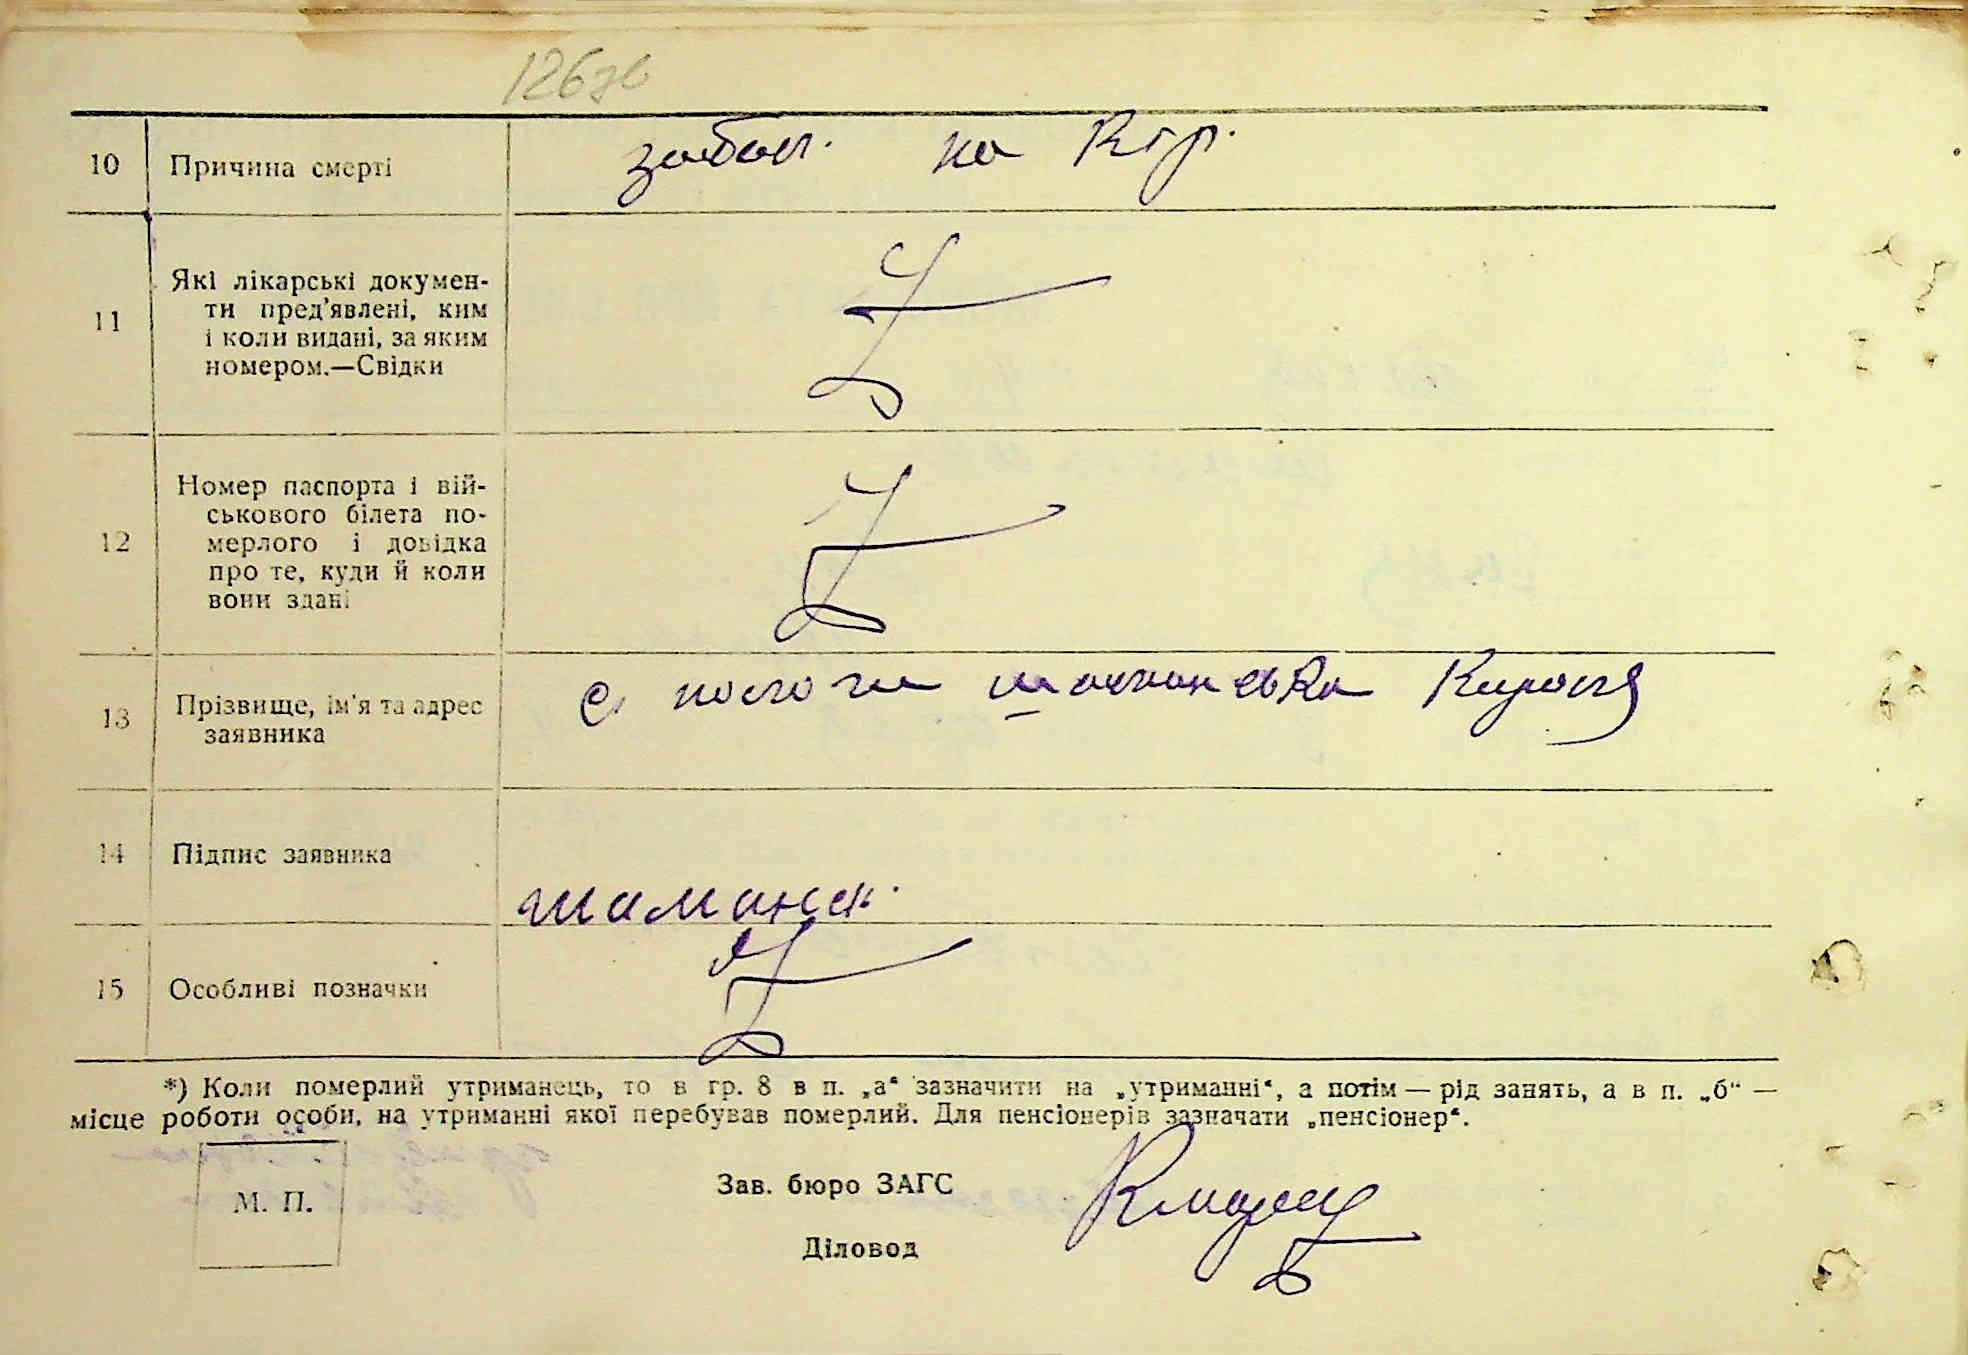 126зв
10 Причина смерті забол. на Кір.
11 Які лікарські докумен-
ти пред'явлені, ким
і коли видані, за яким
номером.—Свідки
12 Номер паспорта і вій-
ськового білета по-
мерлого і довідка
про те, куди й коли
вони здані
13 Прізвище, ім'я та адрес
заявника
с.
14 Підпис заявника
15 Особливі позначки
*) Коли померлий утриманець, то в гр. 8 в п. „а“ зазначити на „утриманні“, а потім — рід занять, а в п. „б“ —
місце роботи особи, на утриманні якої перебував померлий. Для пенсіонерів зазначати „пенсіонер“.
М. П.
Зав. бюро ЗАГС
Діловод